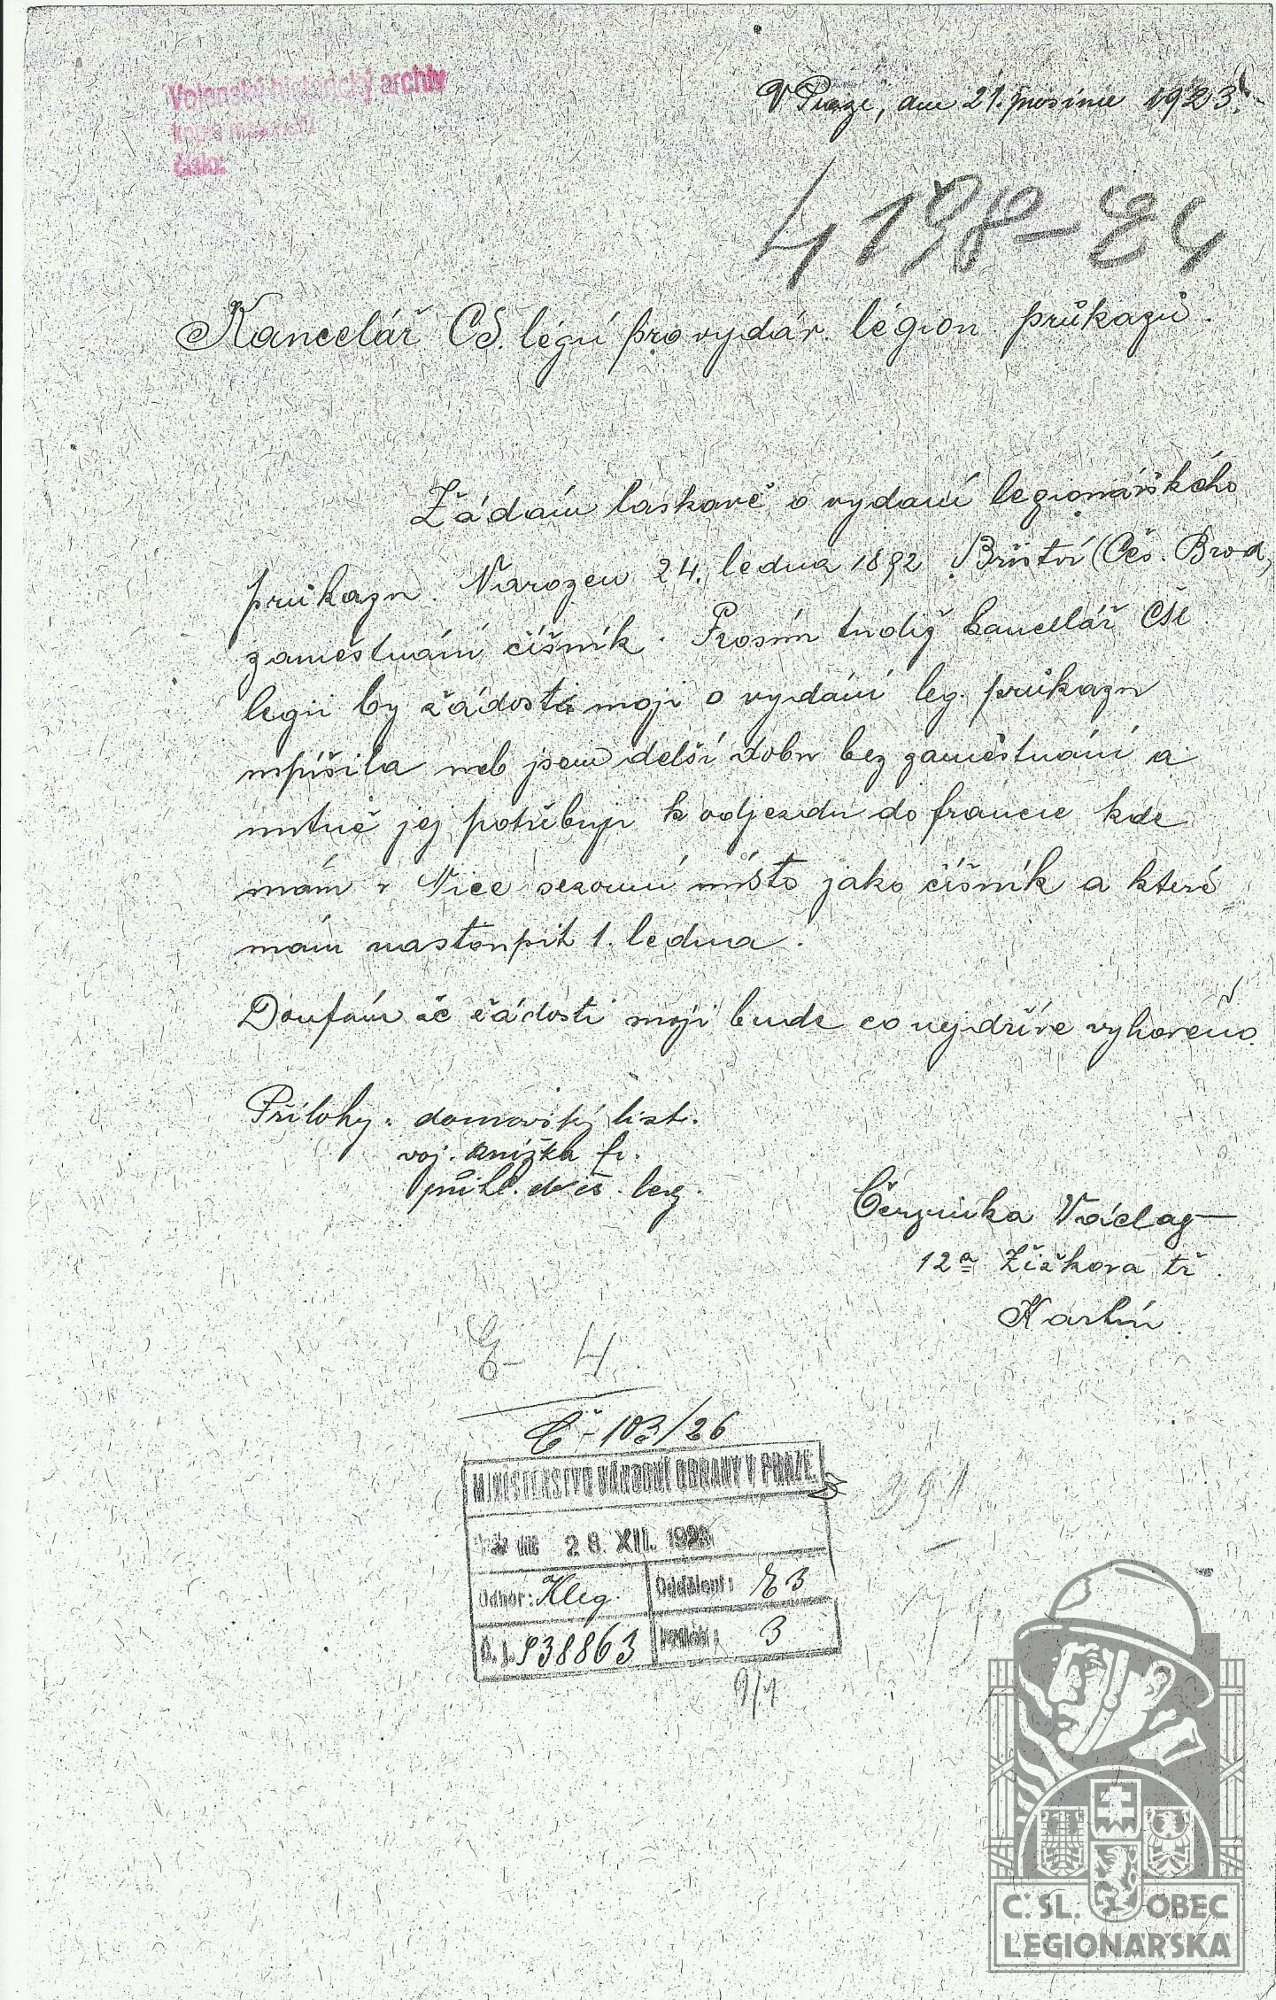 Vojenský historický archiv
kopie materiálu
číslo:
V Praze, dne 21. prosince 1923.
4198-E4
Kancelář ČS. légií pro vydáv. légion. průkazů.
Žádám laskavě o vydání legionářského
průkazu. Narozen 24. ledna 1892 Bříství (Čes. Brod,
zaměstnání číšník. Prosím tudíž kancelář Čsl.
legií by žádosti moji o vydání leg. průkazu
neb jsem delší dobu bez zaměstnání a
nutně jej potřebuji k odjezdu do francie kde
mám v Nice sezonní místo jako číšník a které
mám nastoupit 1. ledna.
Doufám že žádosti moji bude co nejdříve vyhověno.
Přílohy: domovský list.
voj. knížka fr.
leg.
Červinka Václav
12a Žižkova tř.
Karlín
E- 4
Č-103/26
MINISTERSTVO NÁRODNÍ OBRANY V PRAZE.
28. XII. 1923
Odbor: Kleg. Oddělení: E3
Č. j. 938863 3
9/1
391
Č. SL. OBEC
LEGIONÁŘSKÁ